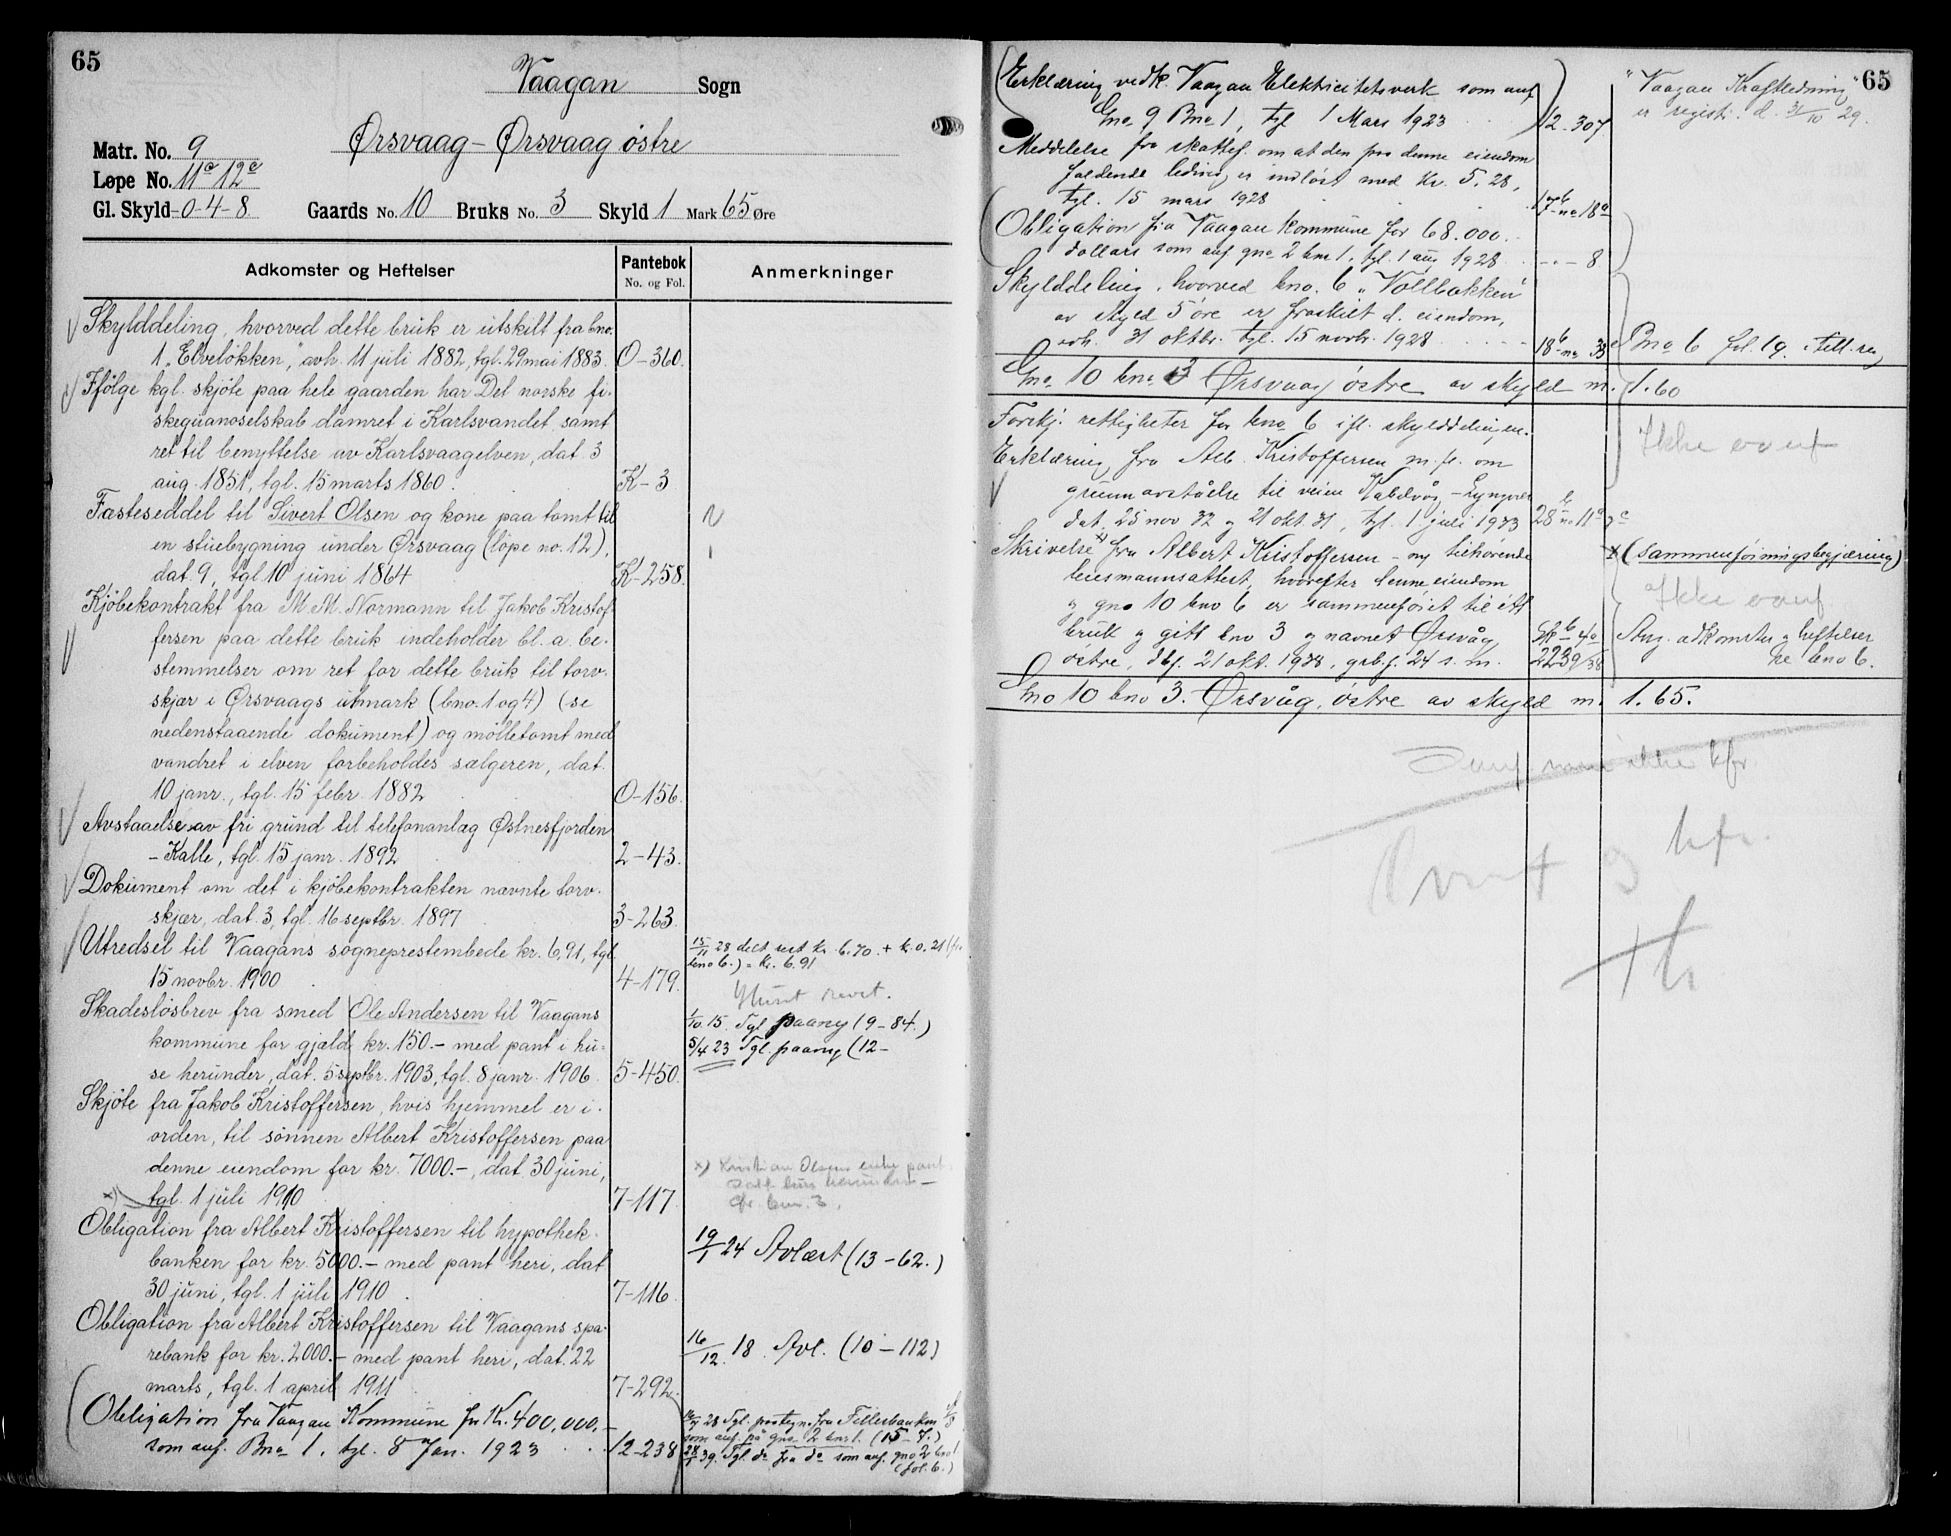 65
Vaagan Sogn
Matr. No. 9
Ørsvaag – Ørsvaag østre
Løpe No. 11a 12a
Gl. Skyld -0-4-8 Gaards No. 10 Bruks No. 3 Skyld 1 Mark 65 Øre
Adkomster og Heftelser
Pantebok
No. og Fol.
Anmerkninger
Skylddeling, hvorved dette bruk er utskilt fra bno.
1, „Elveløkken”, avh. 11 juli 1882, tgl. 29 mai 1883. O-360.
Ifølge kgl. skjøte paa hele gaarden har Det norske fi-
skeguanoselskab damret i Karlsvandet samt
ret til benyttelse av Karlsvaagelven, dat. 3
aug. 1851, tgl. 15 marts 1860. K-3
Fæsteseddel til Sivert Olsen og kone paa tomt til
en stuebygning under Ørsvaag (løpe no. 12),
dat. 9, tgl. 10 juni 1864 K-258.
Kjøbekontrakt fra M. M. Normann til Jakob Kristof-
fersen paa dette bruk indeholder bl. a. be-
stemmelser om ret for dette bruk til torv-
skjær i Ørsvaags utmark (bno. 1 og 4) (se
nedenstaaende dokument) og mølletomt med
vandret i elven forbeholdes sælgeren, dat.
10 janr., tgl. 15 febr. 1882 O-156.
Avstaaelse av fri grund til telefonanlæg Østnesfjorden
– Kalle, tgl. 15 janr. 1892 2-43.
Dokument om det i kjøbekontrakten nævnte torv-
skjær, dat. 3, tgl. 16 septbr. 1897 3-263.
Utredsel til Vaagans sogneprestembede kr. 6,91, tgl.
15 novbr. 1900 4-179.
15/11 28 delt rest kr. 6.70. + kr. 0.21 (fra
bno 6.) = kr. 6.91
Skadesløsbrev fra smed Ole Andersen til Vaagans
kommune for gjæld kr. 150.- med pant i hu-
se herunder, dat. 5 septbr. 1903, tgl. 8 janr. 1906. 5-450.
Huset revet.
1/10 15. Tgl. paany (9-84.)
5/4 23 Tgl. paany (12-
Skjøte fra Jakob Kristoffersen, hvis hjemmel er i
orden, til sønnen Albert Kristoffersen paa
denne eiendom for kr. 7000.-, dat. 30 juni,
tgl. 1 juli 1910 7-117.
x) Kristian Olsens enke pant
satt hus herunder –
bno. 3.
Obligation fra Albert Kristoffersen til hypothek-
banken for kr. 5000.- med pant heri, dat.
30 juni, tgl. 1 juli 1910 7-116.
19/1 24 Avlæst (13-62.)
Obligation fra Albert Kristoffersen til Vaagans spa-
rebank for kr. 2000.- med pant heri, dat. 22
marts, tgl. 1 april 1911 7-292.
16/12. 18. Avl. (10-112)
Obligation fra Vaagan Kommune for Kr. 400,000.-
som anf. Bno 1. tgl. 8 Jan. 1923 12-238
28 Tgl. paategn. fra Fellesbanken
som anf. på gno 2 bno 1. (15-7.)
28/1 39. Tgl. do fra do som anf. gno 2 bno 1
(fol. 6.)
65
Erklæring vedk. Vaagan Elektricitetsverk som anf.
Gno 9 Bno 1, tgl. 1 Mars 1923 12-307
"Vaagan Kraftledning"
er registr. d. 31/10 29.
Meddelelse fra skattef. om at den paa denne eiendom
faldende leding er indløst med Kr. 5.28,
tgl. 15 mars 1928 17b no 18a
Obligation fra Vaagan kommune for 68.000.
dollars som anf. gno 2 bno 1. tgl. 1 aug 1928 -"- 8
Skylddeling, hvorved bno. 6 „Vollbakken”
av skyld 5 øre er fraskilt d. eiendom,
avh. 31 oktbr. tgl. 15 novbr. 1928 18b no 33c
Bno 6 fol. 19. i till. reg
Gno 10 bno 3 Ørsvaag østre av skyld m. 1.60
Forskj. rettigheter for bno 6 ifl. skylddelingen.
Ikke overf
Erklæring fra Alb. Kristoffersen m. fl. om
grunnavståelse til veien Kabelvåg – Lyngvær
dat. 25 nov 32 og 21 okt. 31, tgl. 1 juli 1933 28b no 11a
Skrivelse x) fra Albert Kristoffersen – og tilhørende
x (sammenføiningsbegjæring)
lensmannsattest, hvorefter denne eiendom
og gno 10 bno 6 er sammenføiet til ett
Ikke overf
bruk og gitt bno 3 og navnet Ørsvåg
østre, dbf. 21 okt. 1938, grbf. 24 s. m. 2239/38
Ang. adkomster og heftelser
se bno 6.
Gno 10 bno 3. Ørsvåg, østre av skyld m. 1.65.
Overf og kfr.